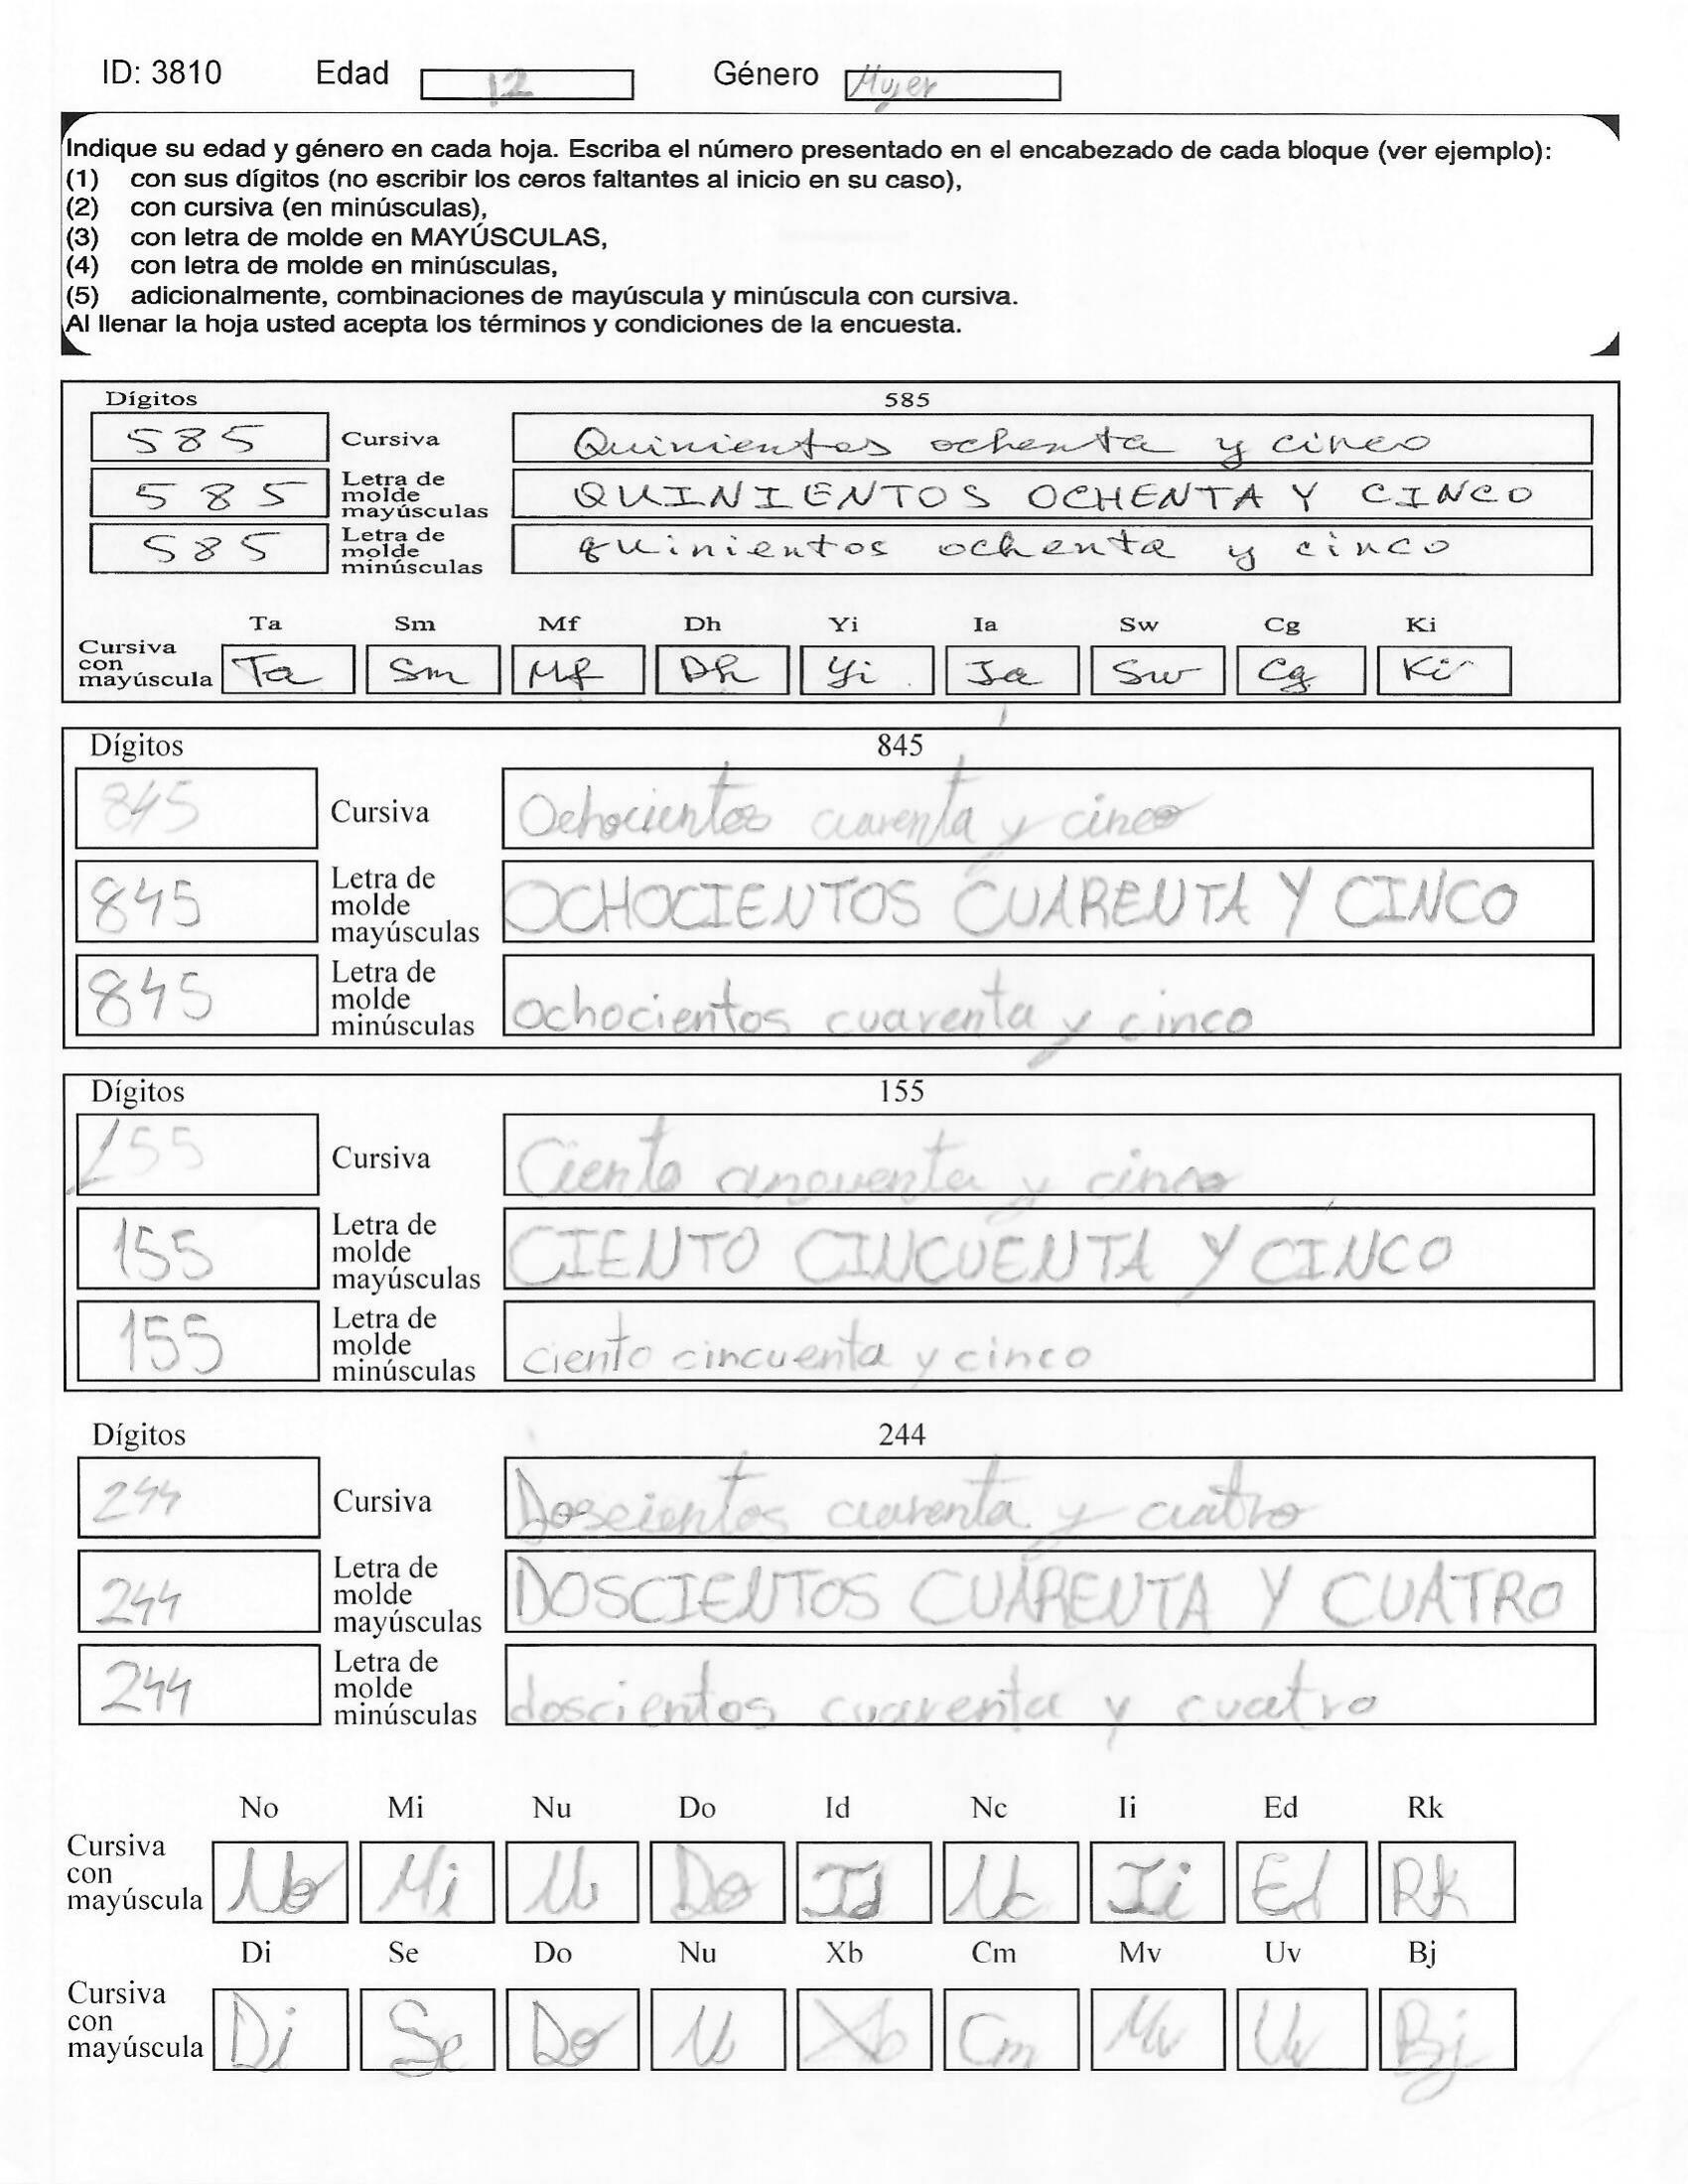 ID: 3810 Edad 12 Género Mujer
Indique su edad y género en cada hoja. Escriba el número presentado en el encabezado de cada bloque (ver ejemplo):
(1) con sus dígitos (no escribir los ceros faltantes al inicio en su caso),
(2) con cursiva (en minúsculas),
(3) con letra de molde en MAYÚSCULAS,
(4) con letra de molde en minúsculas,
(5) adicionalmente, combinaciones de mayúscula y minúscula con cursiva.
Al llenar la hoja usted acepta los términos y condiciones de la encuesta.
Dígitos 585
585 Cursiva Quinientos ochenta y cinco
585 Letra de molde mayúsculas QUINIENTOS OCHENTA Y CINCO
585 Letra de molde minúsculas quinientos ochenta y cinco
Ta Sm Mf Dh Yi Ia Sw Cg Ki
Cursiva con mayúscula Ta Sm Mf Dh Yi Ia Sw Cg Ki
Dígitos 845
845 Cursiva Ochocientos cuarenta y cinco
845 Letra de molde mayúsculas OCHOCIENTOS CUARENTA Y CINCO
845 Letra de molde minúsculas ochocientos cuarenta y cinco
Dígitos 155
155 Cursiva Ciento cincuenta y cinco
155 Letra de molde mayúsculas CIENTO CINCUENTA Y CINCO
155 Letra de molde minúsculas ciento cincuenta y cinco
Dígitos 244
244 Cursiva Doscientos cuarenta y cuatro
244 Letra de molde mayúsculas DOSCIENTOS CUARENTA Y CUATRO
244 Letra de molde minúsculas doscientos cuarenta y cuatro
No Mi Nu Do Id Nc Ii Ed Rk
Cursiva con mayúscula No Mi Nu Do Id Nc Ii Ed Rk
Di Se Do Nu Xb Cm Mv Uv Bj
Cursiva con mayúscula Di Se Do Nu Xb Cm Mv Uv Bj